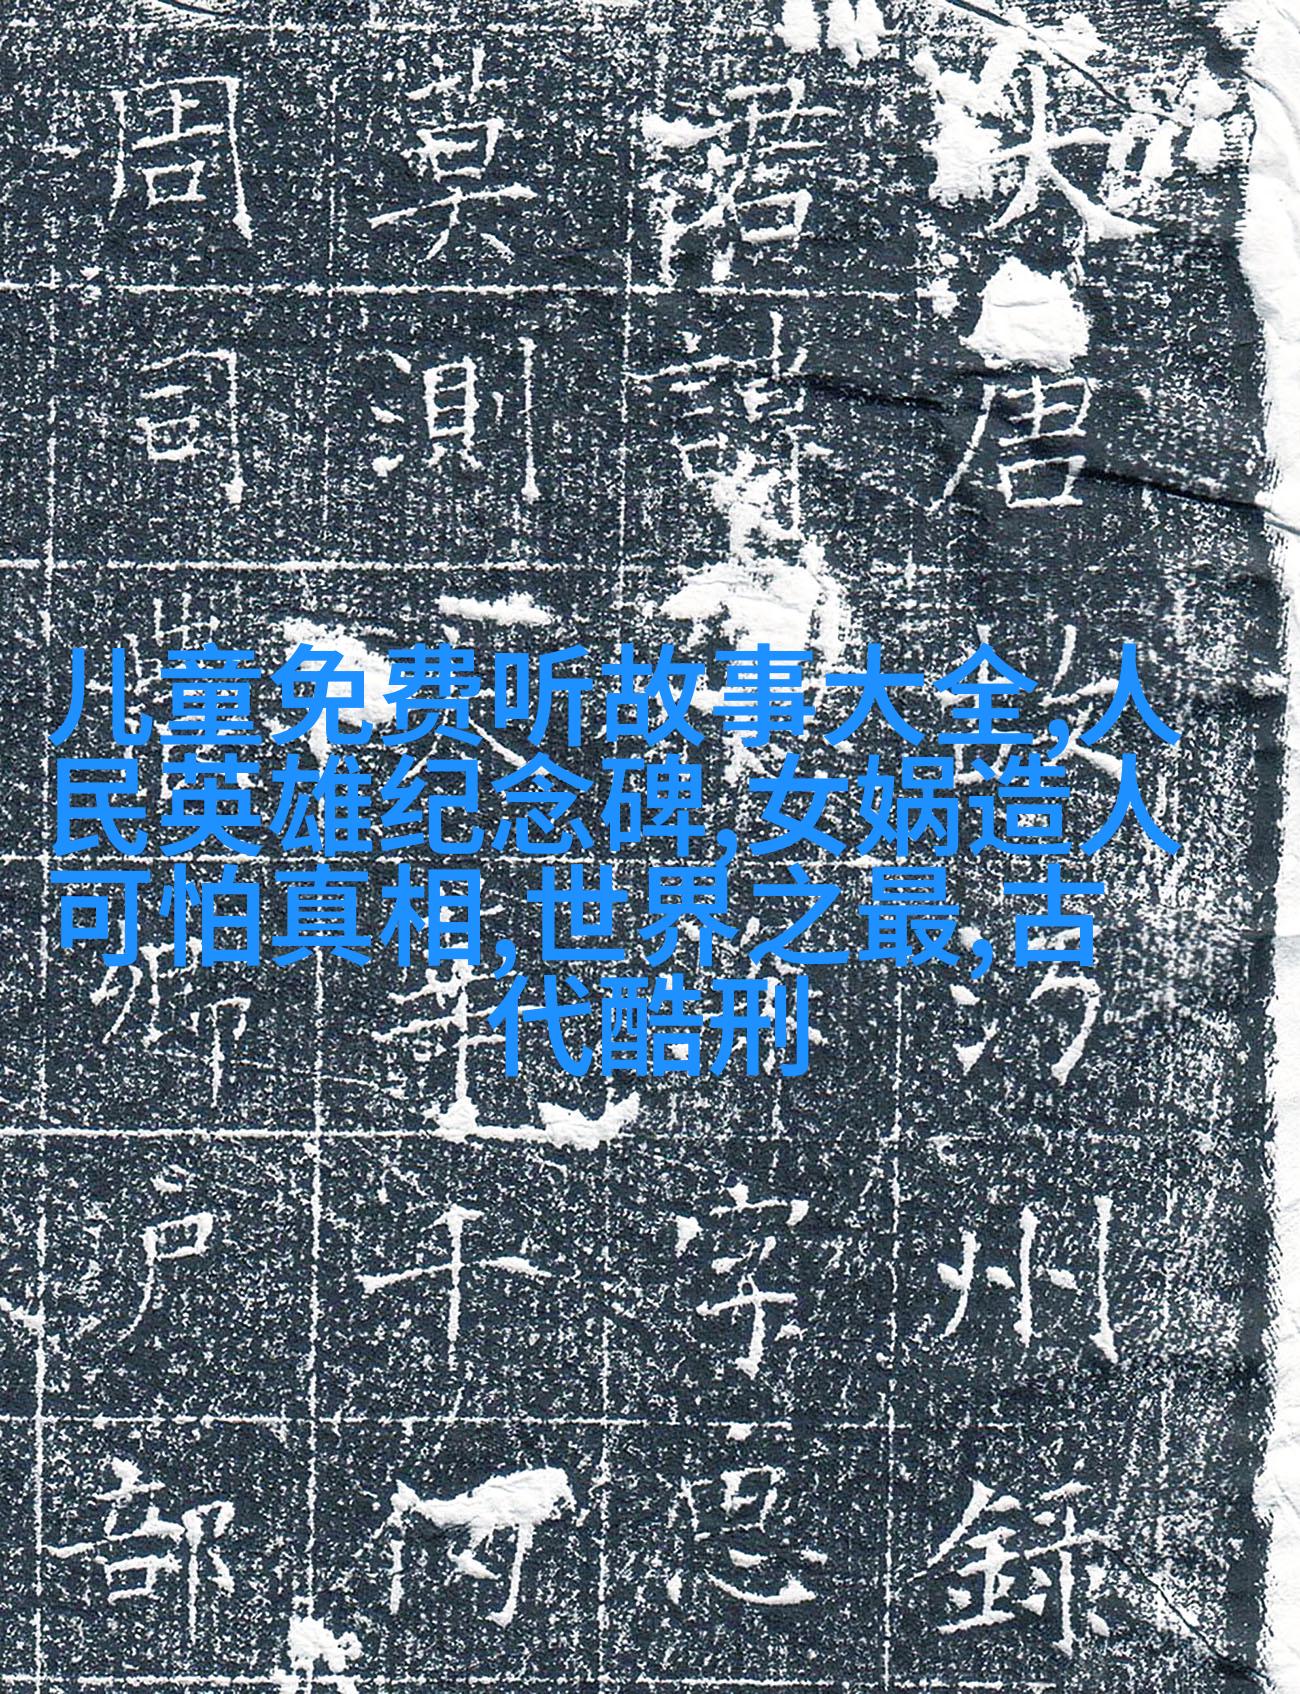 儿童免费听故事大全,人
民英雄纪念碑,女娲造人
可怕真相,世界之最,古
代酷刑
大唐故汾州錄
君諱字思
莫測干
周司卿戶部